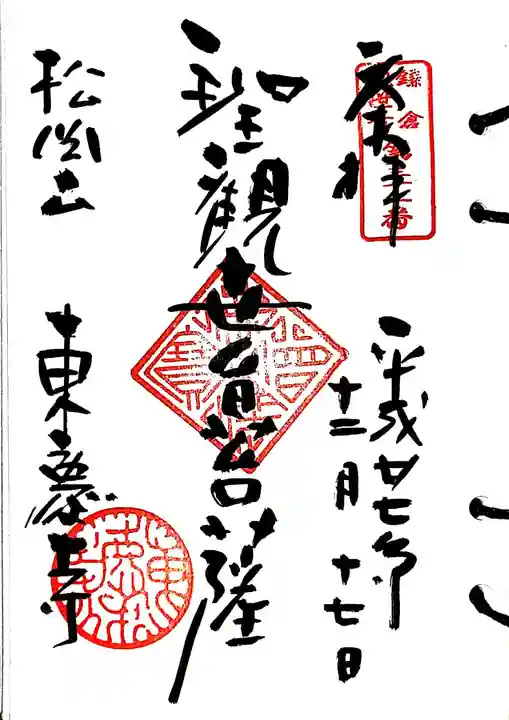 奉拝
鎌倉
第三十三番
平成廿七年
十二月十七日
聖観世音菩薩
松岡山
東慶寺